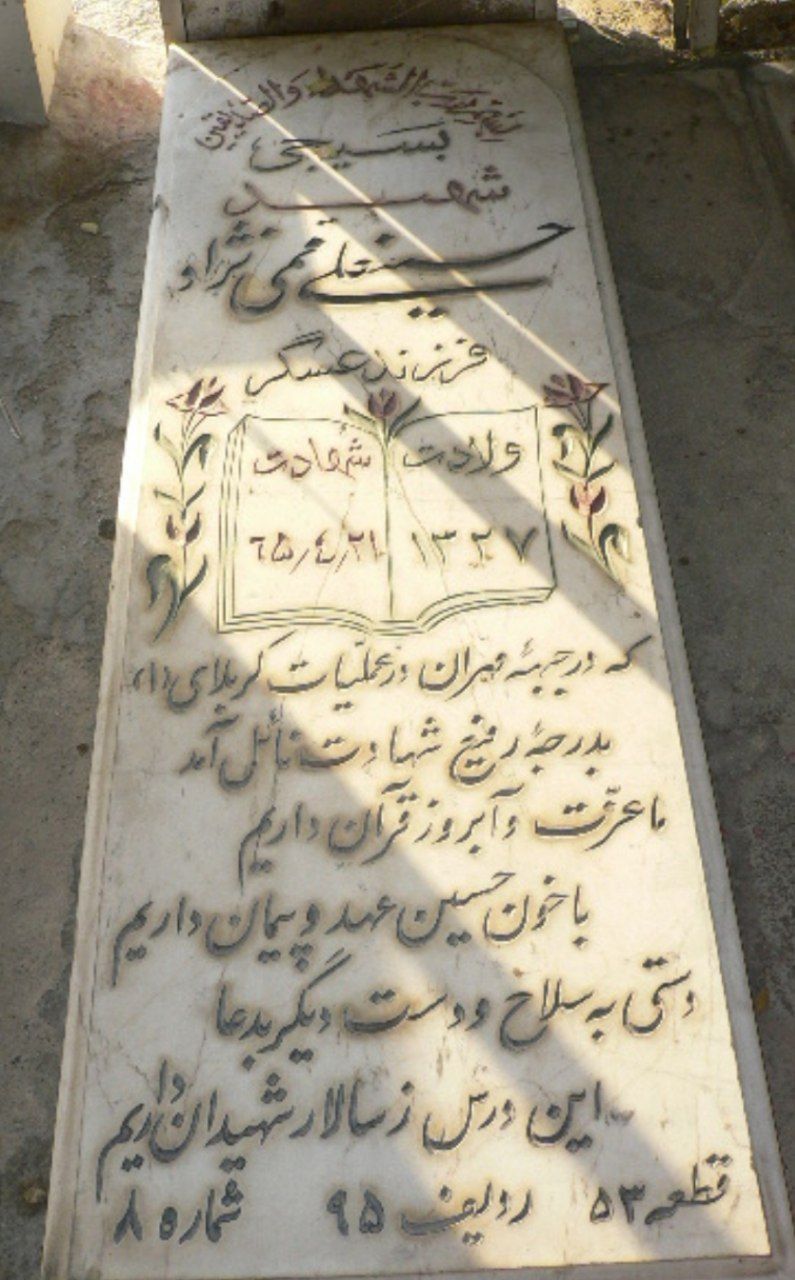 بسم رب الشهداء والصدیقین
بسیجی
شهید
حسینعلی فهمی نژاد
فرزند عسگر
ولادت شهادت
۱۳۲۷ ۶۵/۴/۲۱
که در جبههٔ مهران در عملیات کربلای (۱)
بدرجهٔ رفیع شهادت نائل آمد
ما عزت و آبرو ز قرآن داریم
با خون حسین عهد و پیمان داریم
دستی به سلاح و دست دیگر بدعا
این درس ز سالار شهیدان داریم
قطعه ۵۳ ردیف ۹۵ شماره ۸